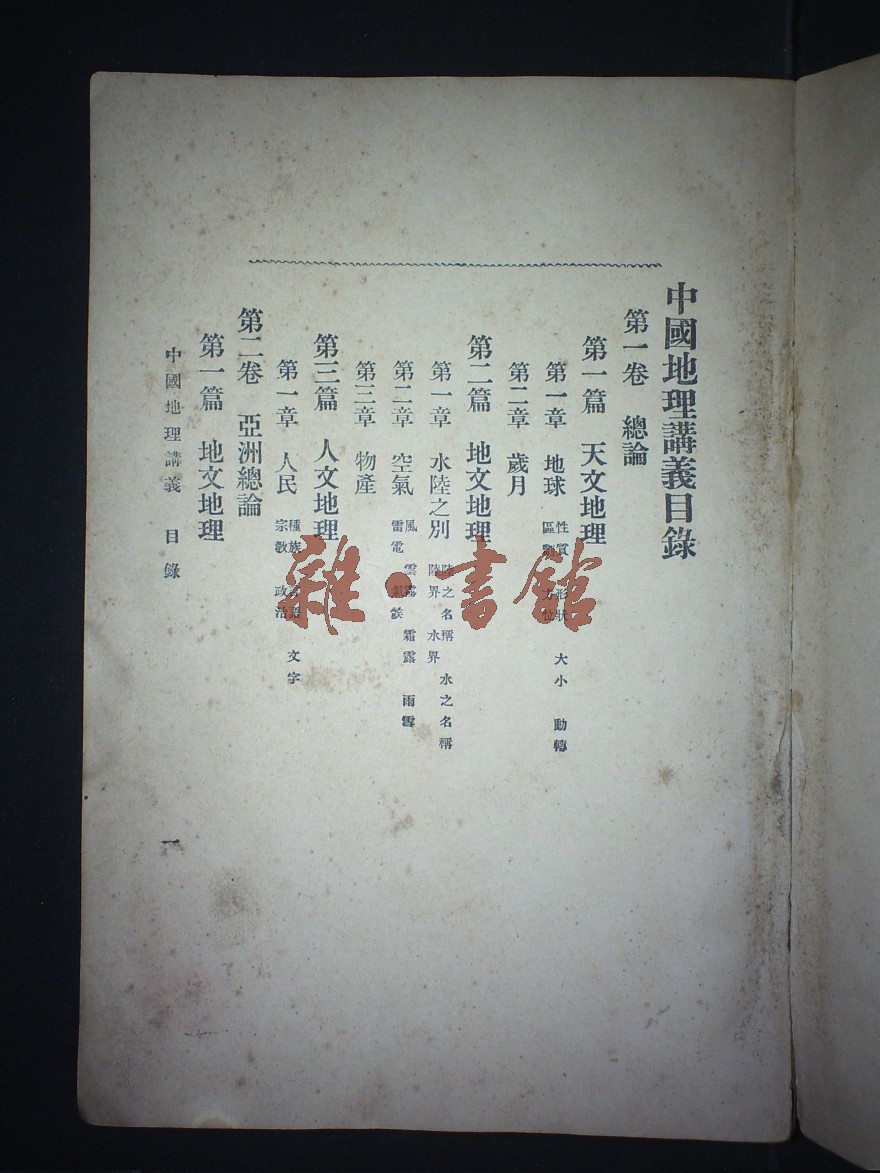 中國地理講義目錄
第一卷 總論
第一篇 天文地理
第一章 地球 性質 形狀 大小 動轉
區劃 方位
第二章 歲月
第二篇 地文地理
第一章 水陸之別 陸之名稱 水之名稱
陸界 水界
第二章 空氣 風 雲霧 霜露 雨雪
雷電 氣候
第三章 物產
第三篇 人文地理
第一章 人民 種族 言語 文字
宗教 政治
第二卷 亞洲總論
第一篇 地文地理
中國地理講義 目錄
一
雜·書館